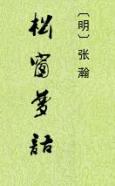 〔明〕张瀚
松窗梦语